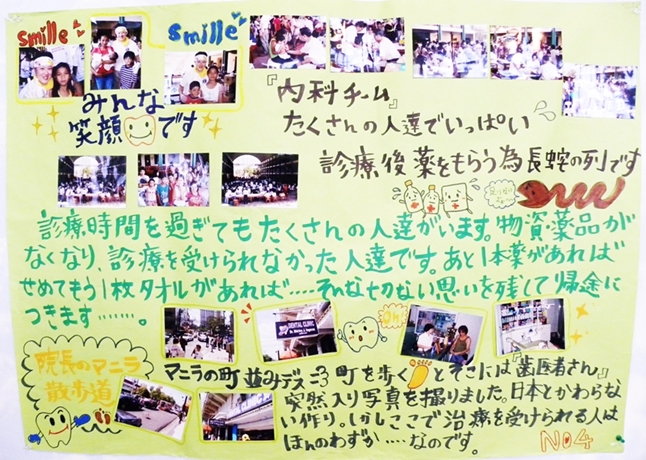 smille
smille
みんな
笑顔です
『内科チーム』
たくさんの人達でいっぱい
診療後薬をもらう為長蛇の列です
診療時間を過ぎてもたくさんの人達がいます。物資・薬品が
なくなり、診療を受けられなかった人達です。あと1本薬があれば
せめてもう1枚タオルがあれば‥‥そんな切ない思いを残して帰途に
つきます‥‥‥。
DENTAL CLINIC
院長のマニラ
散歩道
マニラの町並みデス 町を歩くとそこには『歯医者さん』
突然入り写真を撮りました。日本とかわらな
い作り。しかしここで治療を受けられる人は
ほんのわずか‥‥なのです。
No4